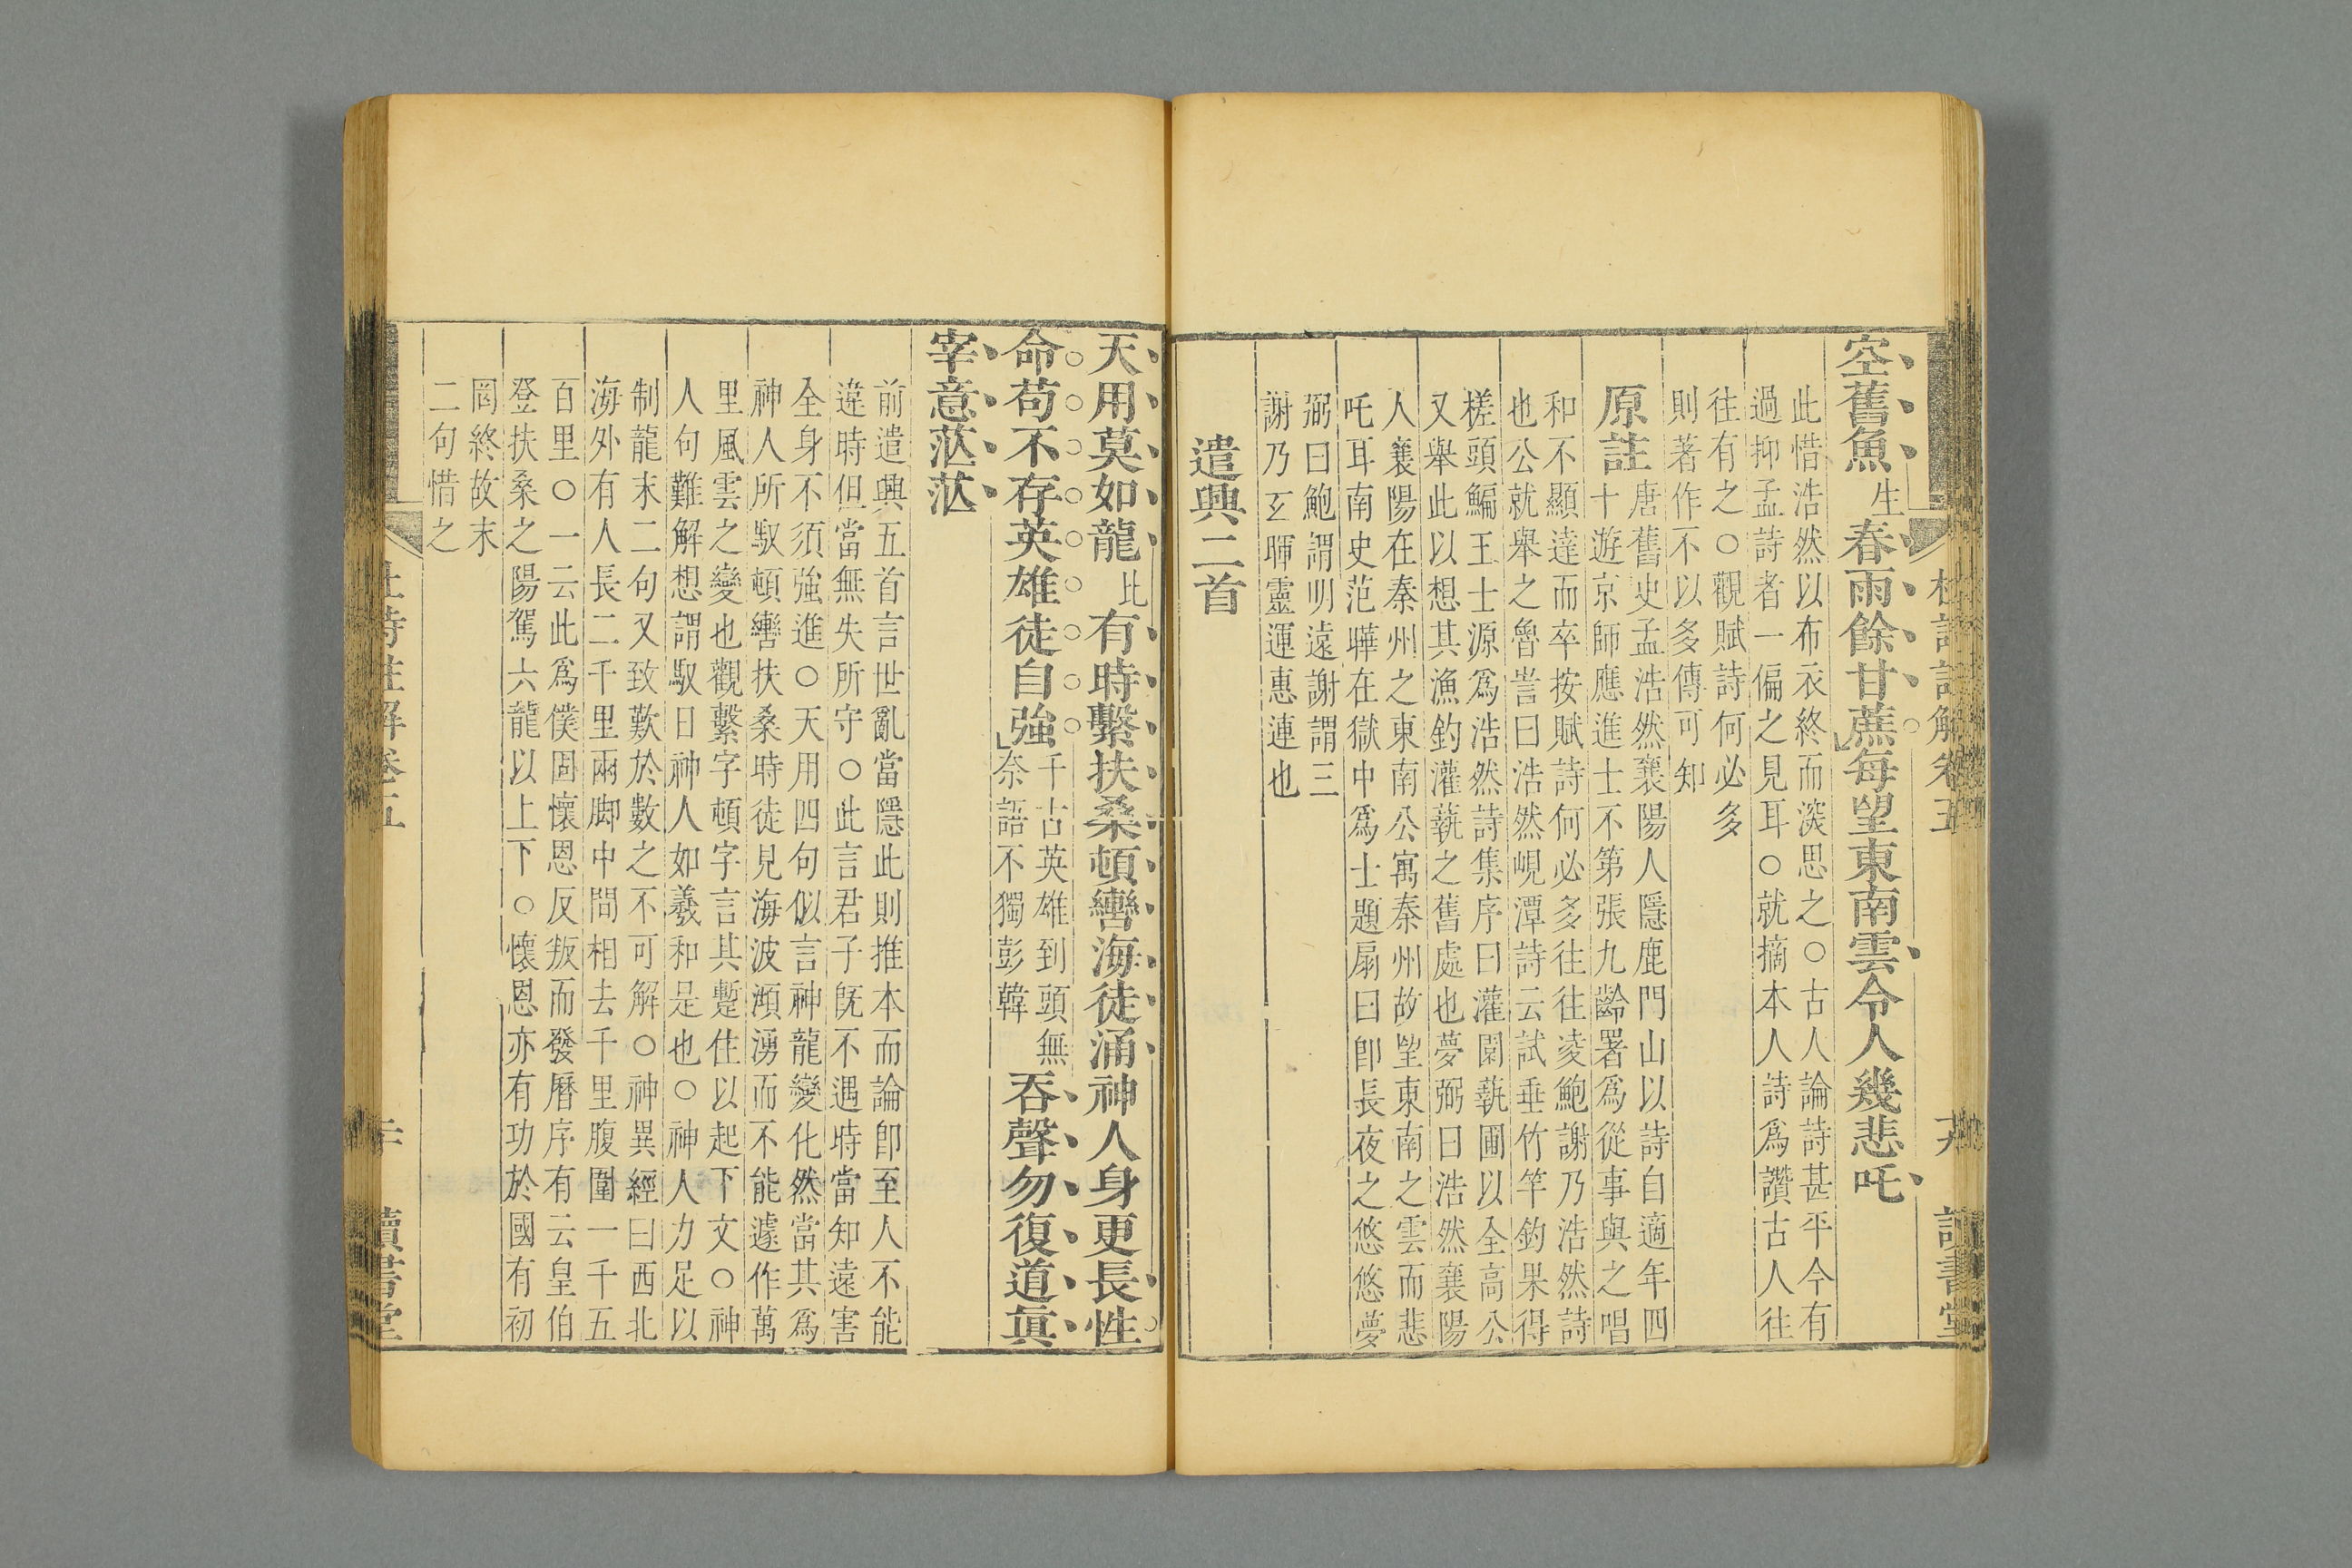 空舊魚生春雨餘甘蔗每望東南雲令人幾悲吒
此惜浩然以布衣終而淡思之○古人論詩甚平今有
過抑孟詩者一偏之見耳○就摘本人詩為讚古人往
往有之○觀賦詩何必多
則著作不以多傳可知
原註
唐舊史孟浩然襄陽人隱鹿門山以詩自適年四
十遊京師應進士不第張九齡署爲從事與之唱
和不顯達而卒按賦詩何必多往往凌鮑謝乃浩然詩
也公就舉之魯訔曰浩然峴潭詩云試垂竹竿釣果得
槎頭鯿王士源爲浩然詩集序曰灌園蓺圃以全高公
又舉此以想其漁釣灌蓺之舊處也夢弼曰浩然襄陽
人襄陽在秦州之東南公寓秦州故望東南之雲而悲
吒耳南史范曄在獄中爲士題扇曰卽長夜之悠悠夢
弼曰鮑謂明遠謝謂三
謝乃玄暉靈運惠連也
遣興二首
杜詩註解卷五
十九
讀書堂
天用莫如龍比有時繫扶桑頓轡海徒涌神人身更長性
命苟不存英雄徒自強
千古英雄到頭無
奈語不獨彭韓
吞聲勿復道眞
宰意茫茫
前遣興五首言世亂當隱此則推本而論卽至人不能
違時但當無失所守○此言君子旣不遇時當知遠害
全身不須強進○天用四句似言神龍變化然當其爲
神人所馭頓轡扶桑時徒見海波澒湧而不能遽作萬
里風雲之變也觀繫字頓字言其蹔住以起下文○神
人句難解想謂馭日神人如羲和是也○神人力足以
制龍末二句又致歎於數之不可解○神異經曰西北
海外有人長二千里兩脚中間相去千里腹圍一千五
百里○一云此爲僕固懷恩反叛而發曆序有云皇伯
登扶桑之陽駕六龍以上下○懷恩亦有功於國有初
罔終故末
二句惜之
杜詩註解卷五
二十
讀書堂